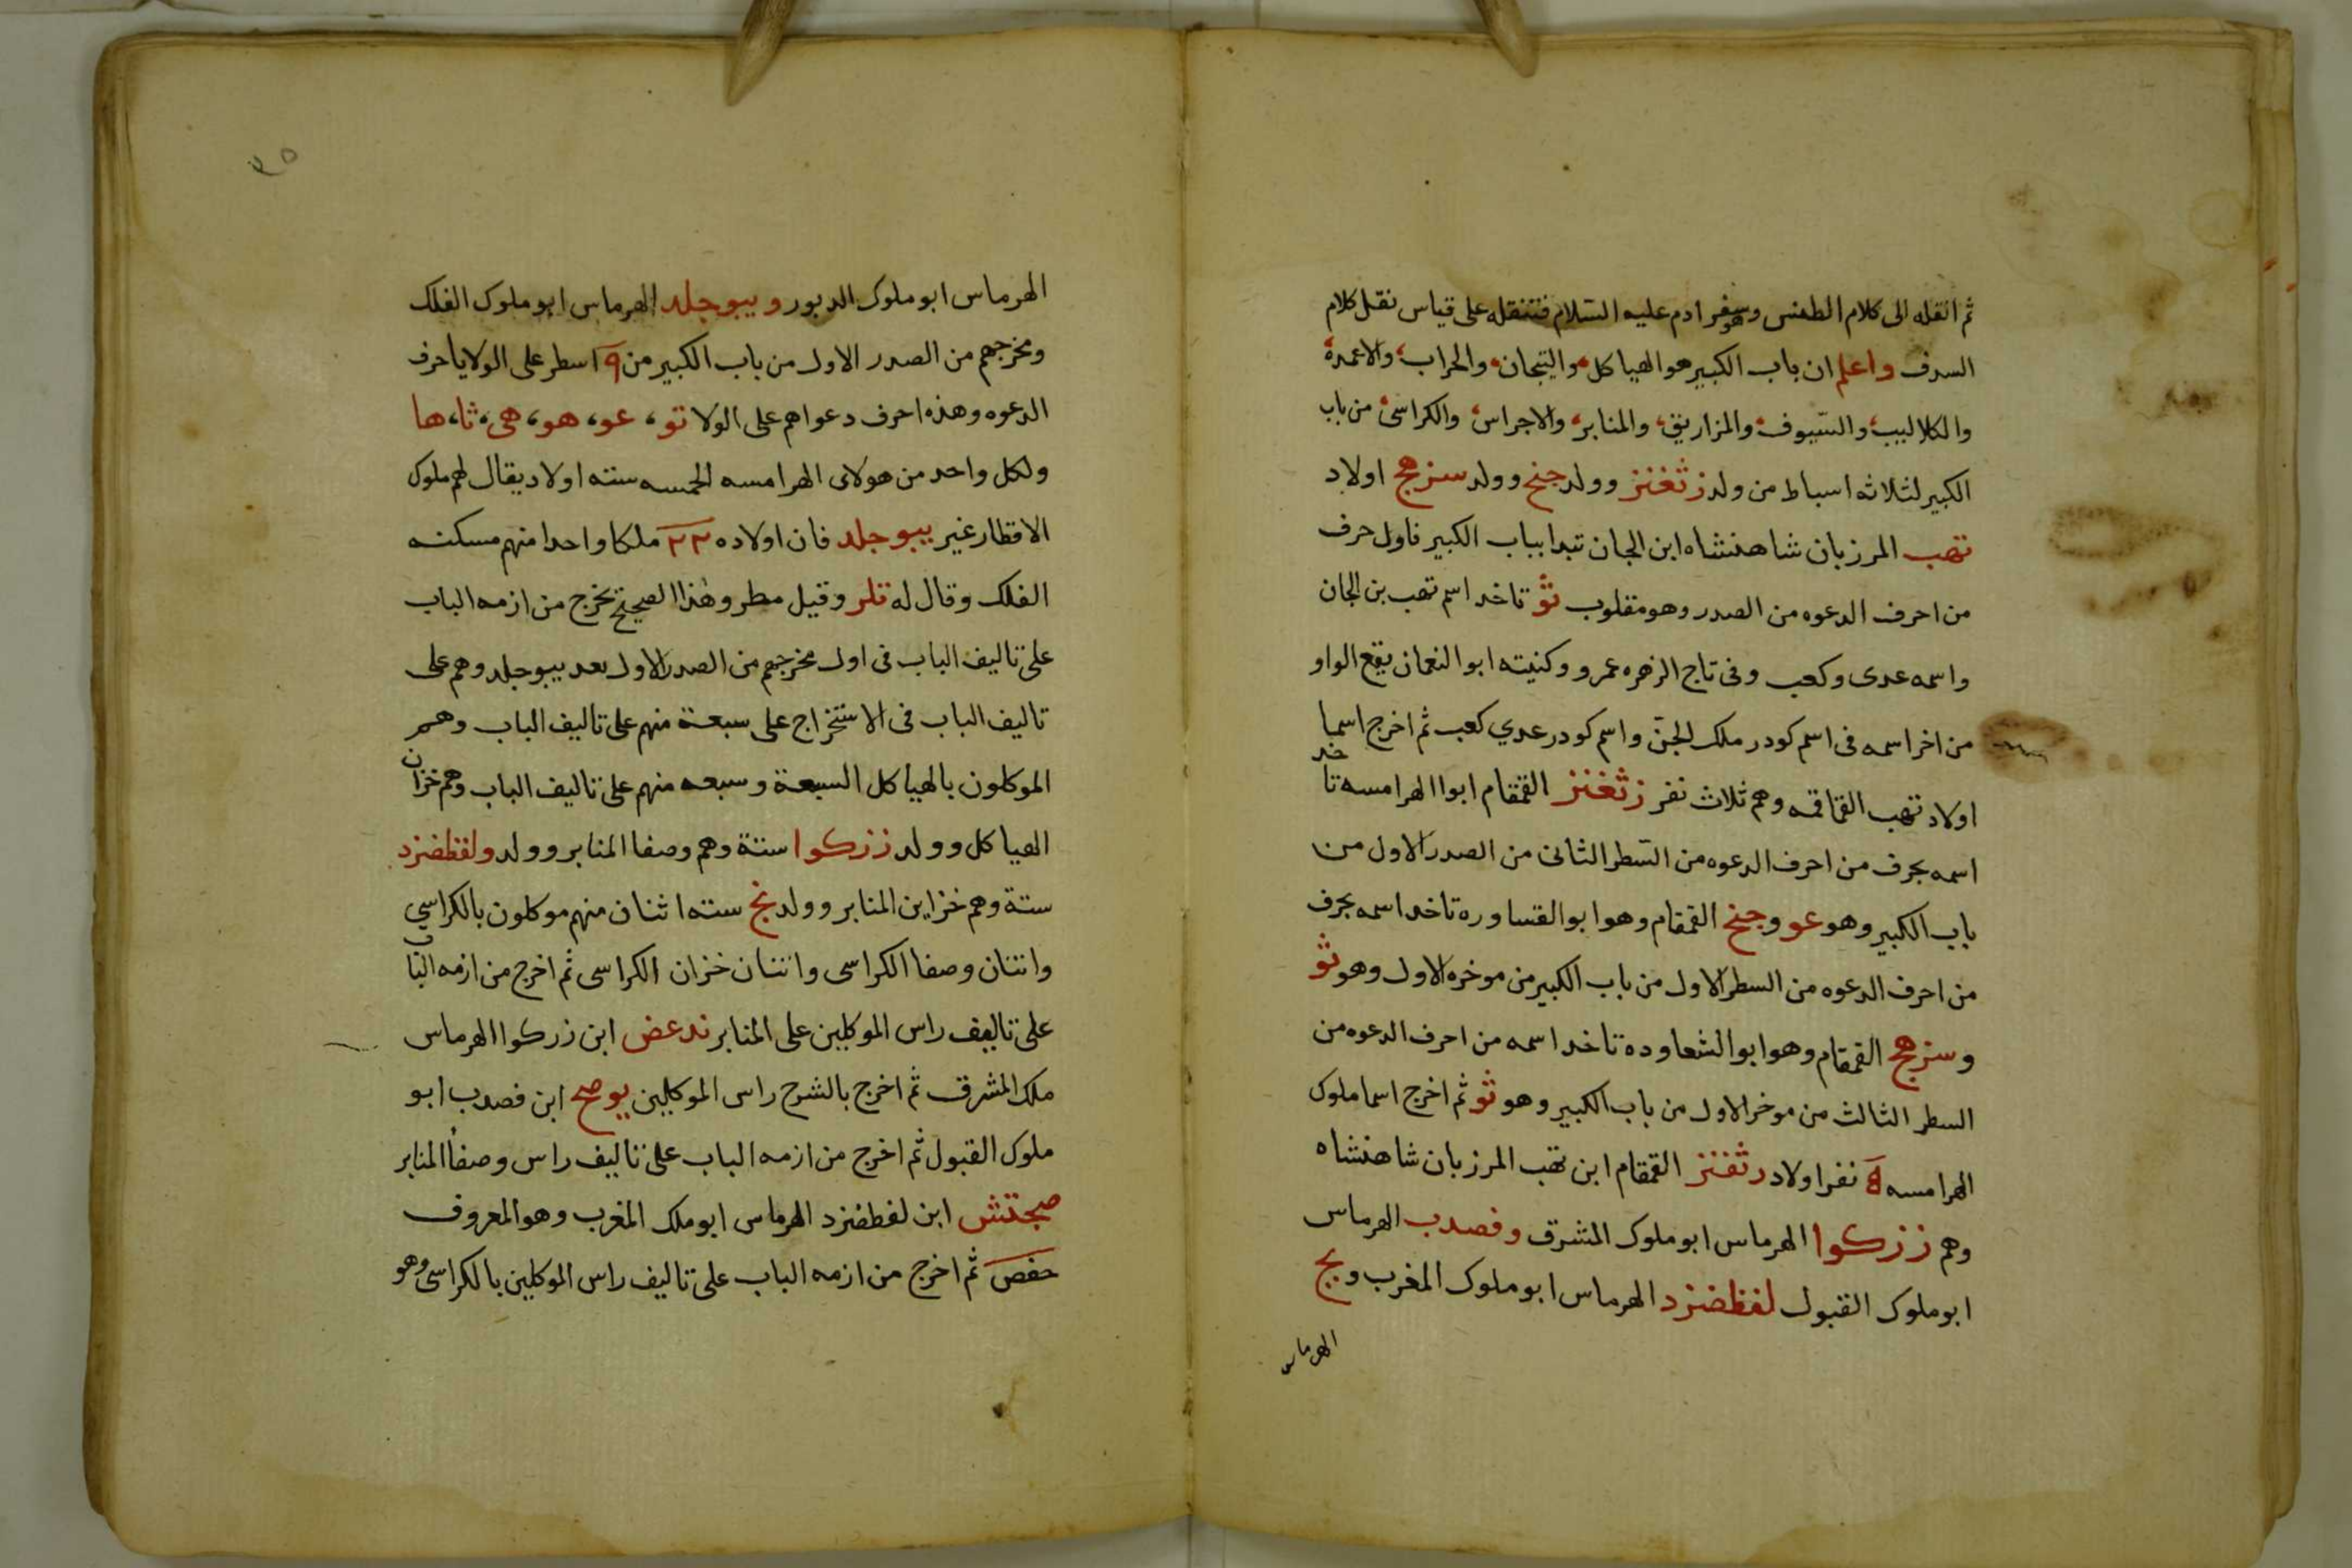 ثم انقله الى كلام الطمس وهو سفر ادم عليه السلام فتنقله على قياس نقل كلام
السرف واعلم ان باب الكبير هو الهياكل والتيجان والحراب والاعمدة
والكلاليب والسيوف والمزاريق والمنابر والاجراس والكراسى من باب
الكبير لثلاثه اسباط من ولد زثغنز وولد جنخ وولد سزهج اولاد
تهب المرزبان شاهنشاه ابن الجان تبدا بباب الكبير فاول حرف
من احرف الدعوه من الصدر وهو مقلوب ثؤ تاخد اسم تهب بن الجان
واسمه عدى وكعب وفى تاج الزهره عمرو وكنيته ابو النعمان يقع الواو
من اخر اسمه فى اسم كودر ملك الجن واسم كودر عدي كعب ثم اخرج اسما
اولاد تهب القماقمه وهم ثلاث نفر زثغنز القمقام ابوا الهرامسه تاخد
اسمه بحرف من احرف الدعوه من السطر الثانى من الصدر الاول من
باب الكبير وهو عو وجنخ القمقام وهو ابو القساوره تاخد اسمه بحرف
من احرف الدعوه من السطر الاول من باب الكبير من موخره الاول وهو ثو
وسزهج القمقام وهو ابو الشعاوده تاخد اسمه من احرف الدعوه من
السطر الثالث من موخر الاول من باب الكبير وهو ثو ثم اخرج اسما ملوك
الهرامسه نفر اولاد رثغنز القمقام ابن تهب المرزبان شاهنشاه
وهم ززكوا الهرماس ابو ملوك المشرق وفصدب الهرماس
ابو ملوك القبول لفظضزد الهرماس ابو ملوك المغرب ويج
الهرماس
٣٥
الهرماس ابو ملوك الدبور ويبوجلد الهرماس ابو ملوك الفلك
ومخرجهم من الصدر الاول من باب الكبير من ٩ اسطر على الولا ياحرف
الدعوه وهذه احرف دعواهم على الولا تو، عو، هو، هى، ثا، ها
ولكل واحد من هولاى الهرامسه الخمسه سته اولاد يقال لهم ملوك
الاقطار غير يبوجلد فان اولاده ٢٢ ملكا واحدا منهم مسكنه
الفلك وقال له قلر وقيل مطر وهذا الصحيح تخرج من ازمه الباب
على تاليف الباب فى اول مخرجهم من الصدر الاول بعد يبوجلد وهم على
تاليف الباب فى الاستخراج على سبعة منهم على تاليف الباب وهم
الموكلون بالهياكل السبعة وسبعه منهم على تاليف الباب وهم خزان
الهياكل وولد ززكوا ستة وهم وصفا المنابر وولد ولفظضزد
ستة وهم خزاين المنابر وولد نج سته اثنان منهم موكلون بالكراسي
واثنان وصفا الكراسى واثنان خزان الكراسى ثم اخرج من ازمه الباب
على تاليف راس الموكلين على المنابر ندعض ابن زركوا الهرماس
ملك المشرق ثم اخرج بالشرح راس الموكلين يوصح ابن فصدب ابو
ملوك القبول ثم اخرج من ازمه الباب على تاليف راس وصفا المنابر
صجتش ابن لفطضزد الهرماس ابو ملك المغرب وهو المعروف
حفص ثم اخرج من ازمه الباب على تاليف راس الموكلين بالكراسى وهو